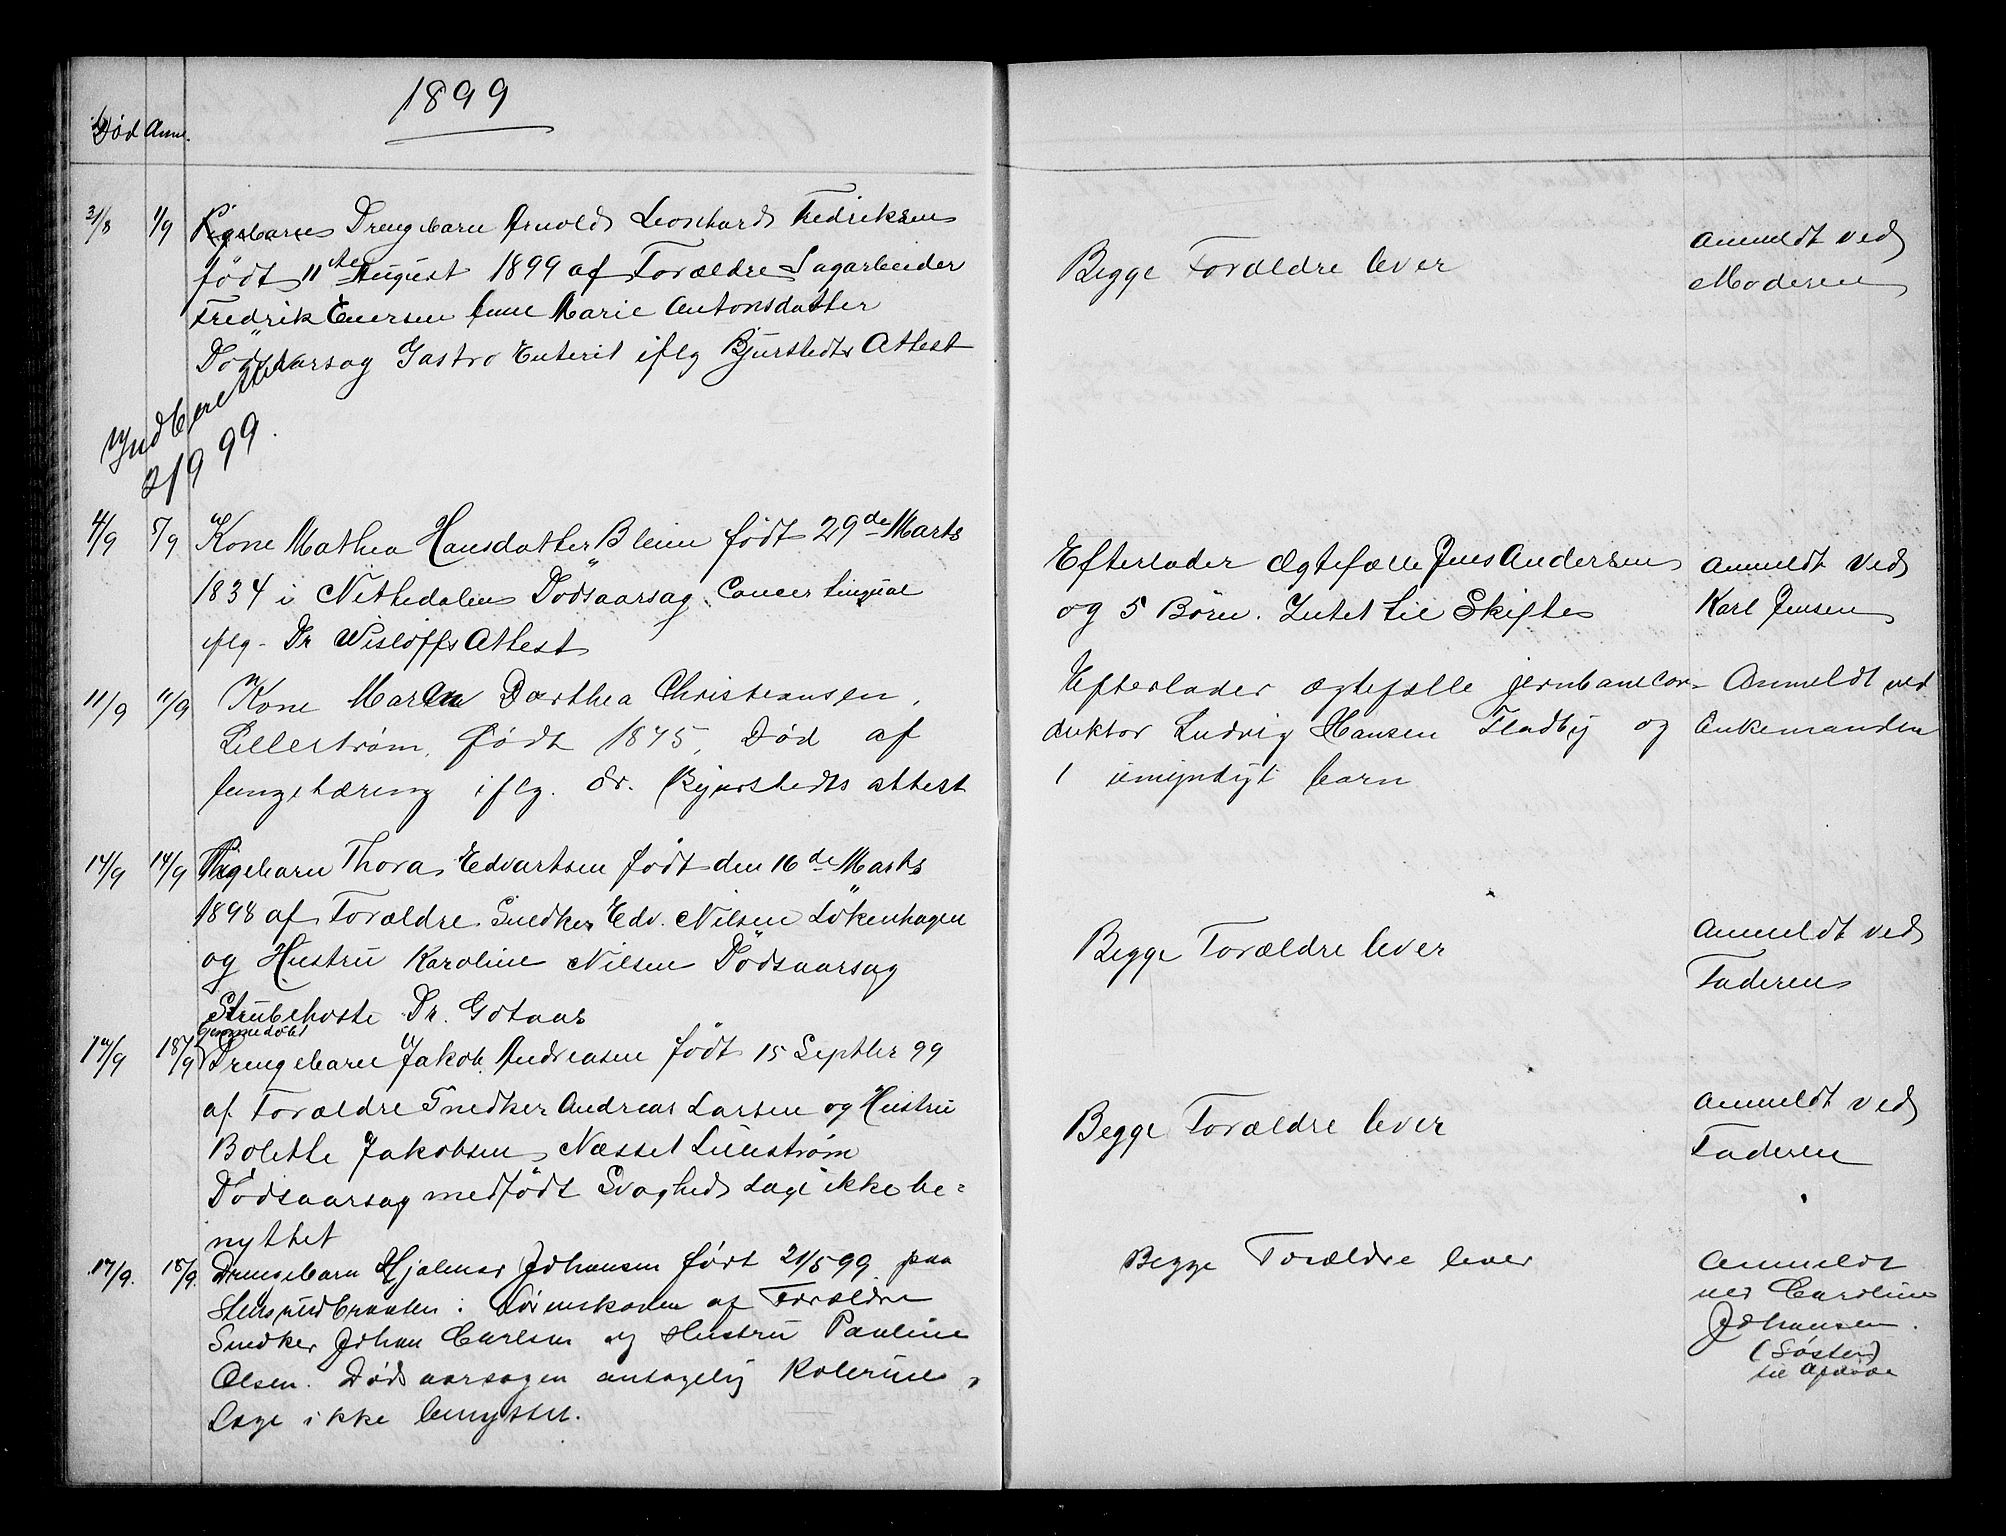 1899
Død Anm.
31/8 1/9 Pigebarn Drengebarn Arnold Leonhard Fredriksen
født 11te August 1899 af Forældre Sagarbeider
Fredrik Enersen Anne Marie Antonsdatter
Dødsaarsag Gastro Enterit iflg Bjurstedts Attest
Indberettet
2/9 99.
4/9 5/9 Kone Mathea Hansdatter Bleien født 29de Marts
1834 i Nittedalen Dødsaarsag Cancer Linguae
iflg. Dr Wisløffs Attest
11/9 11/9 Kone Maren Dorthea Christiansen,
Lillestrøm, født 1875, Død af
lungetæring iflg. dr. Bjurstedts attest
14/9 14/9 Pigebarn Thora Edvartsen født den 16de Marts
1898 af Forældre Snedker Edv. Nilsen Løkenhagen
og Hustru Karoline Nilsen Dødsaarsag
Strubehoste Dr. Gotaas
hjemmedøbt
17/9 18/9 Drengebarn Jakob Andreasen født 15 Septbr 99
af Forældre Snedker Andreas Larsen og Hustru
Bolette Jakobsen Næsset Lillestrøm
Dødsaarsag medfødt Svaghed Læge ikke be=
nyttet
17/9. 18/9. Drengebarn Hjalmar Johansen født 21/5 99 paa
i Lørenskogen af Forældre
Snedker Johan Carlsen og Hustru Pauline
Olsen. Dødsaarsagen antagelig Kolerine,
Læge ikke benyttet.
Begge Forældre lever
Anmeldt ved
Moderen
Efterlader Ægtefælle Jens Andersen
og 5 Børn. Intet til Skifte
Anmeldt ved
Karl Jensen
Efterlader ægtefælle jernbanecon-
duktør Ludvig Hansen Fladby og
1 umyndigt barn
Anmeldt ved
Enkemanden
Begge Forældre lever
Anmeldt ved
Faderen
Begge Forældre lever
Anmeldt ved
Faderen
Begge Forældre lever
Anmeldt
ved Caroline
Johansen.
(Søster)
til Afdøde